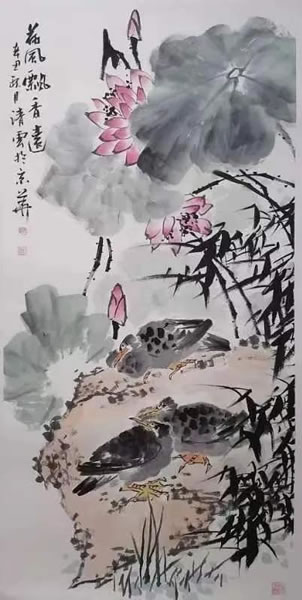 荷風飄香遠
辛丑秋月清雲於京華